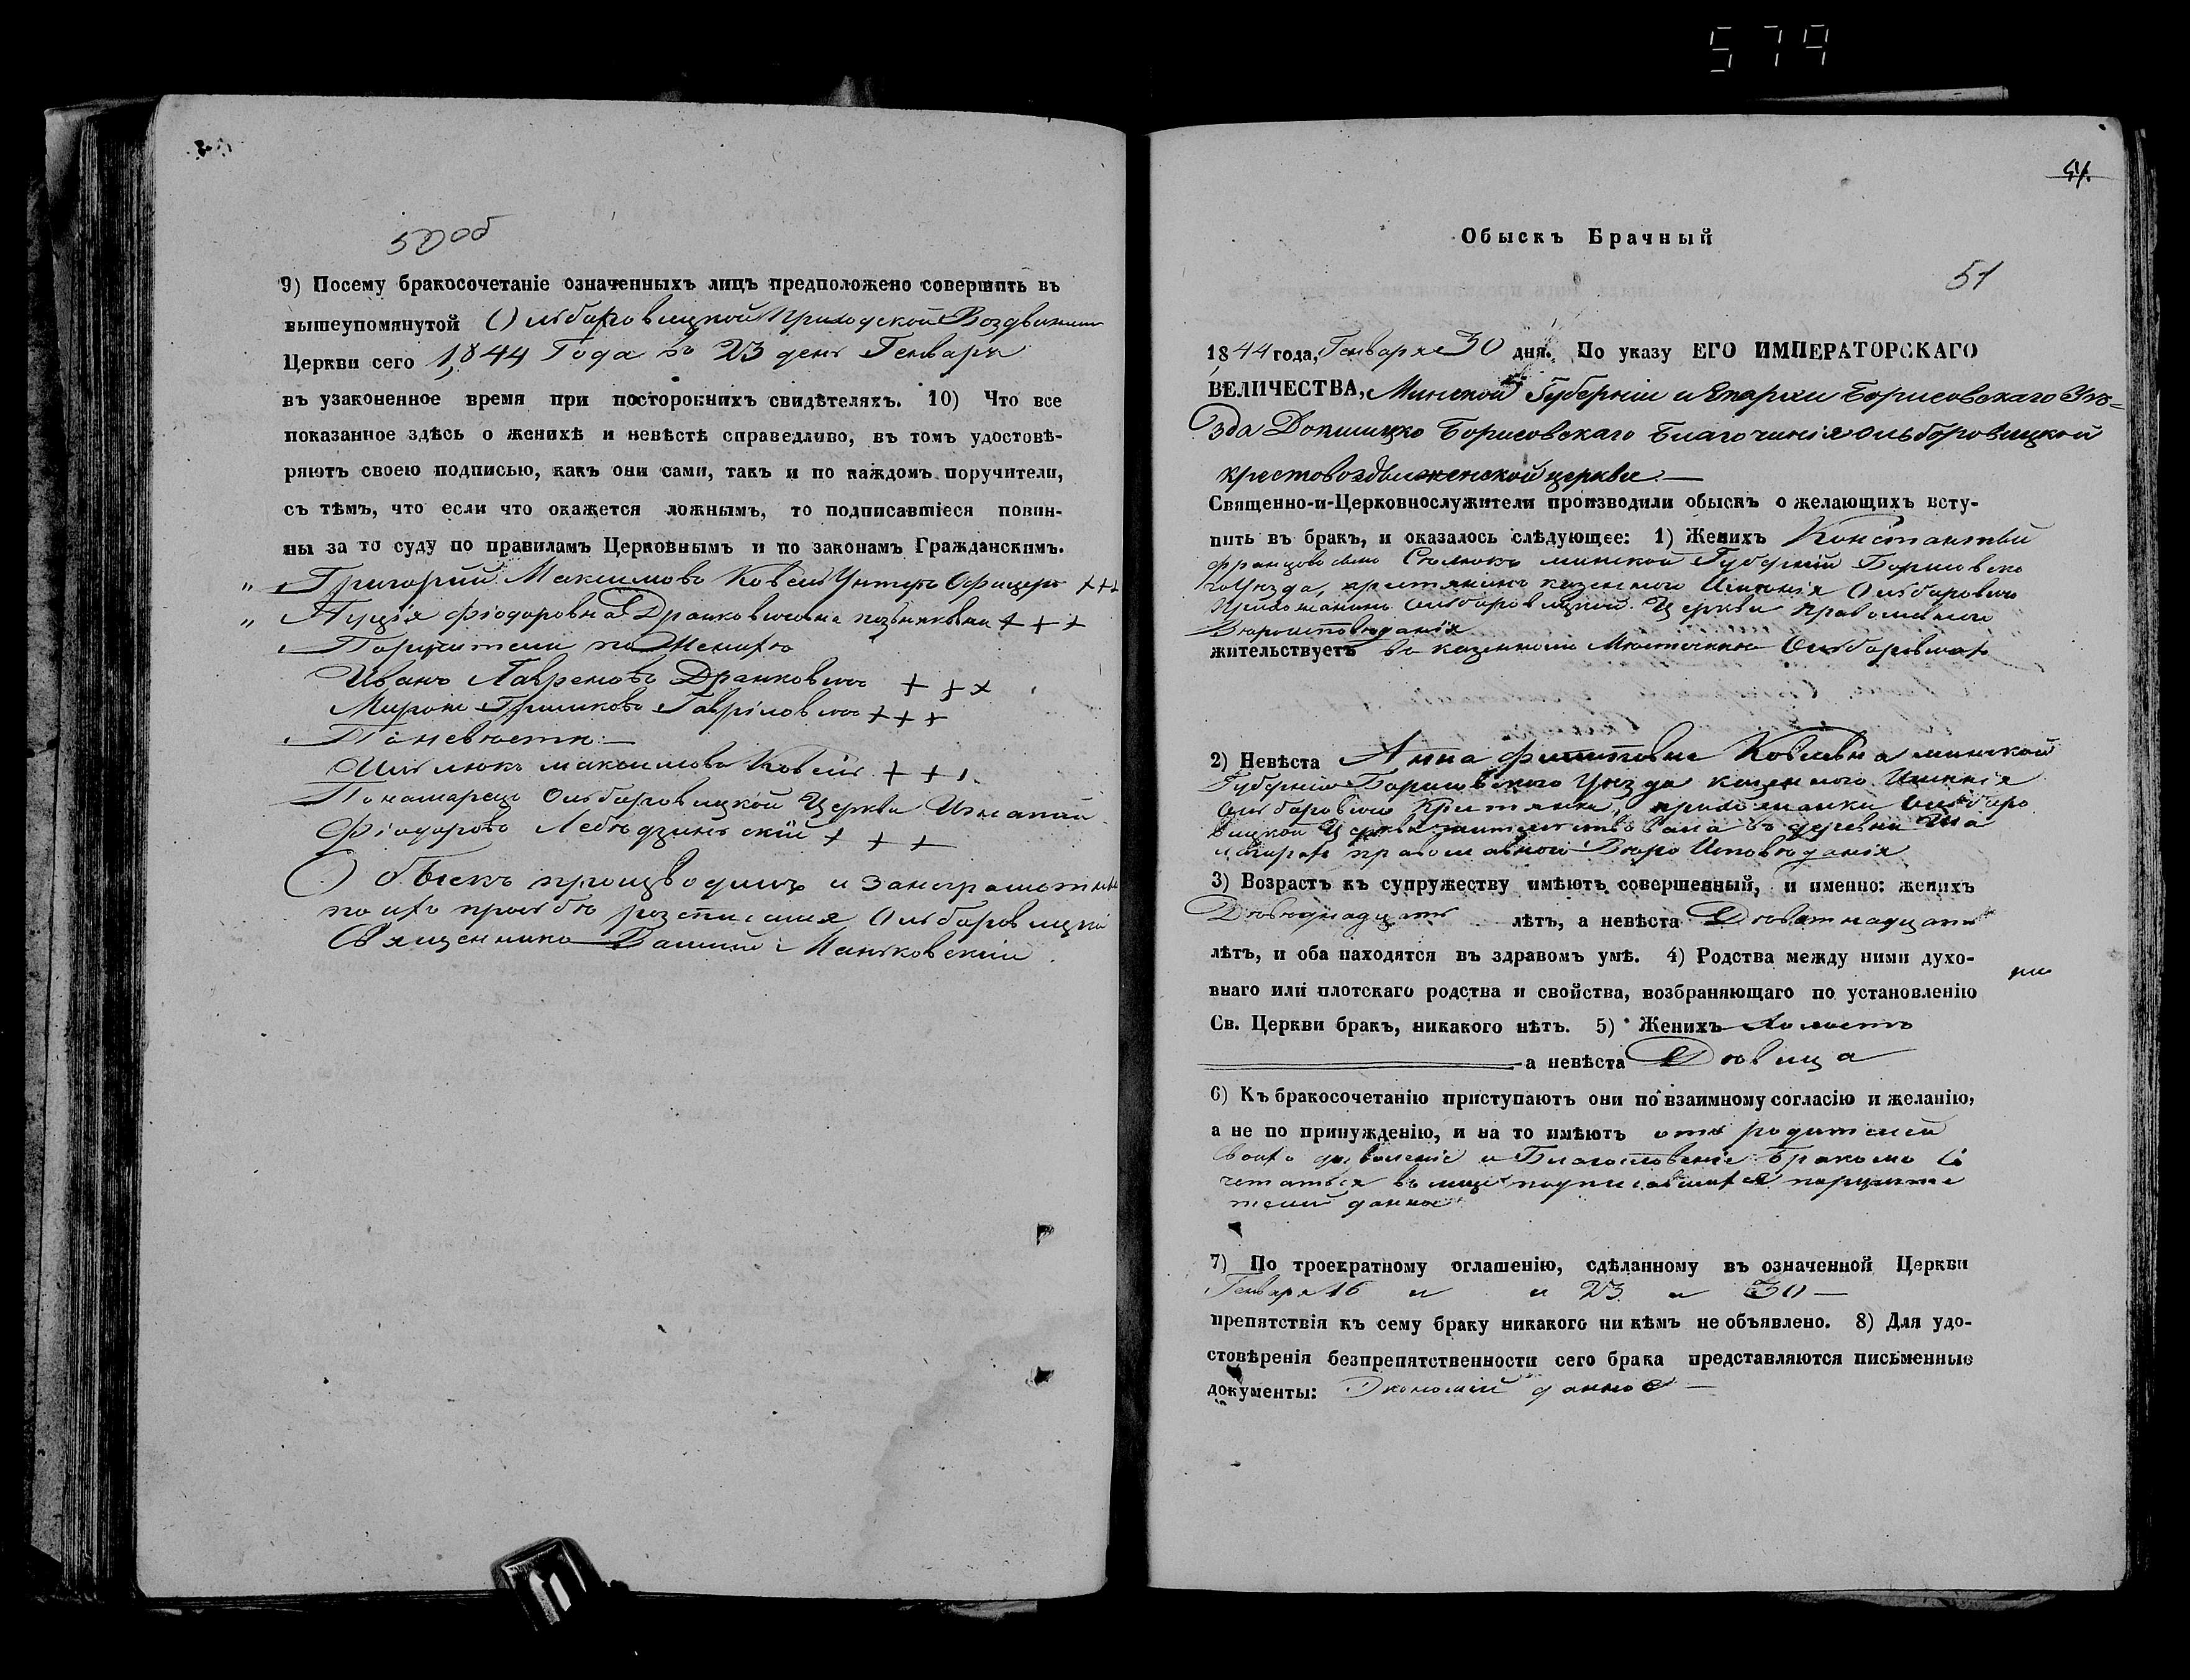 579
50об
9) Посему бракосочетаніе означенныхъ лицъ предположено совершить въ
вышеупомянутой Ольборовицкой Приходской Воздвижен
Церкви сего 1844 Года въ 23 день Генваря
въ узаконенное время при постороннихъ свидѣтеляхъ. 10) Что все
показанное здѣсь о женихѣ и невѣстѣ справедливо, въ томъ удостовѣ-
ряютъ своею подписью, какъ они сами, такъ и по каждомъ поручители,
съ тѣмъ, что если что окажется ложнымъ, то подписавшіеся повин-
ны за то суду по правиламъ Церковнымъ и по законамъ Гражданскимъ.
" Григорій Максимовъ Ковель Унтеръ Офицеръ +++
" Луція Фіодоровна Дранковичовна +++
Поручители по Женихѣ
Иванъ Лавреновъ Дранковичъ +++
Миронъ Гавриловичъ +++
По невѣсти —
Максимовъ Ковель +++
Понамарець Ольборовицкой Церкви Игнатій
Фіодоровъ +++
Обыскъ производилъ и занеграмотныхъ
по ихъ прозбѣ розписался Ольборовицкій
Священникъ Василій Маньковскій
51.
Обыскъ Брачный
51
1844 года, Генваря 30 дня. По указу ЕГО ИМПЕРАТОРСКАГО
ВЕЛИЧЕСТВА, Минской Губерніи и Епархіи Борисовскаго Уѣ-
зда Докшицко Борисовскаго Благочинія Ольборовицкой
крестовоздвиженской церкви —
Священно-и-Церковнослужители производили обыскъ о желающихъ всту-
пить въ бракъ, и оказалось слѣдующее: 1) Женихъ Константій
Францовъ сынъ Минской Губерніи Борисовско
го Уѣзда, крестянинъ казенного Имѣнія Ольборовичъ
Прихожанинъ Ольборовицкой Церкви Православного
Вѣроисповѣданія
жительствуетъ въ казенномъ Мѣстечкѣ Ольборовичахъ
2) Невѣста Анна Ковлевна минской
Губерніи Борисовского Уѣзда казенного Имѣнія
Ольборовичъ Крестянка, прихожанка Ольборо
вицкой Церкви жителствовала въ деревни
православного Вѣро Исповѣданія
3) Возрастъ къ супружеству имѣютъ совершенный, и именно: женихъ
лѣтъ, а невѣста Девятнадцать
лѣтъ, и оба находятся въ здравомъ умѣ. 4) Родства между ними духо-
внаго или плотскаго родства и свойства, возбраняющаго по установленію
Св. Церкви бракъ, никакого нѣтъ. 5) Женихъ Холостъ
а невѣста Дѣвица
6) Къ бракосочетанію приступаютъ они по взаимному согласію и желанію,
а не по принужденію, и на то имѣютъ отъ родителей
своихъ дозволеніе и Благословеніе Бракомъ со
четаться въ лицѣ подписавшихся поручите
лей данное
7) По троекратному оглашенію, сдѣланному въ означенной Церкви
Генваря 16 и и 23 и 30 —
препятствія къ сему браку никакого ни кѣмъ не объявлено. 8) Для удо-
стовѣренія безпрепятственности сего брака представляются письменные
документы: Экономіи данное —